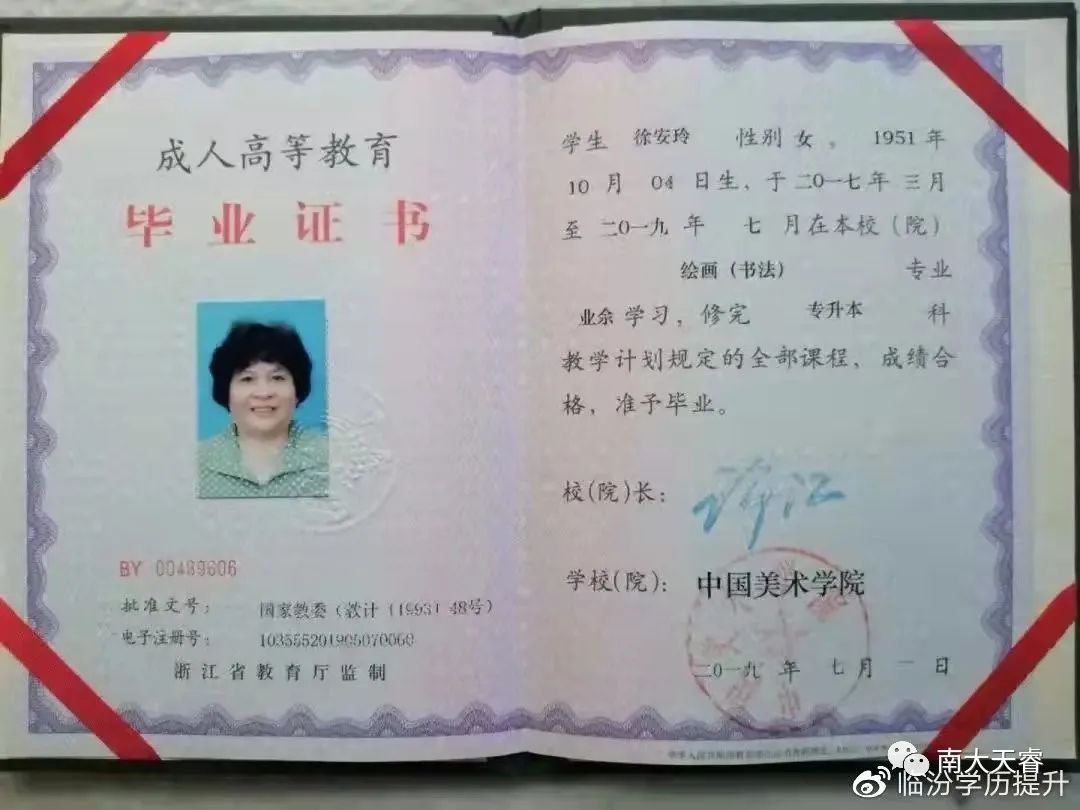 成人高等教育
毕业证书
BY 00489606
批准文号： 国家教委（教计（1993）48号）
电子注册号： 103555201905070060
浙江省教育厅监制
学生 徐安玲 性别 女，1951 年
10 月 04 日生，于二〇一七年 三月
至 二〇一九 年 七 月在本校（院）
绘画（书法） 专业
业余 学习，修完 专升本 科
教学计划规定的全部课程，成绩合
格，准予毕业。
校（院）长：
学校（院）： 中国美术学院
二〇一九 年 七 月 一 日
南大天睿
临汾学历提升